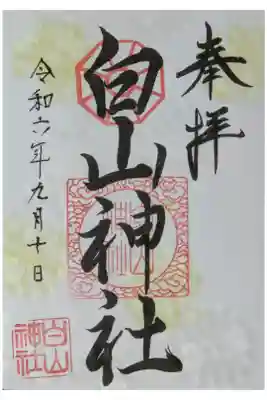 奉拝
白山神社
令和六年九月十日
白山
神社